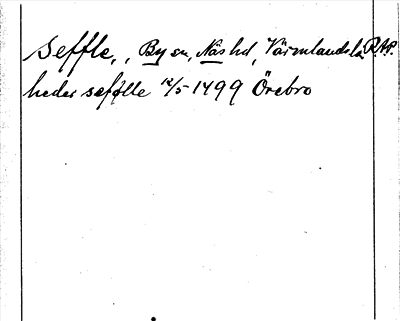 Seffle, , By sn, Näs hd, Värmlands l. R.A.P.
heder sefflle 12/5 1499 Örebro